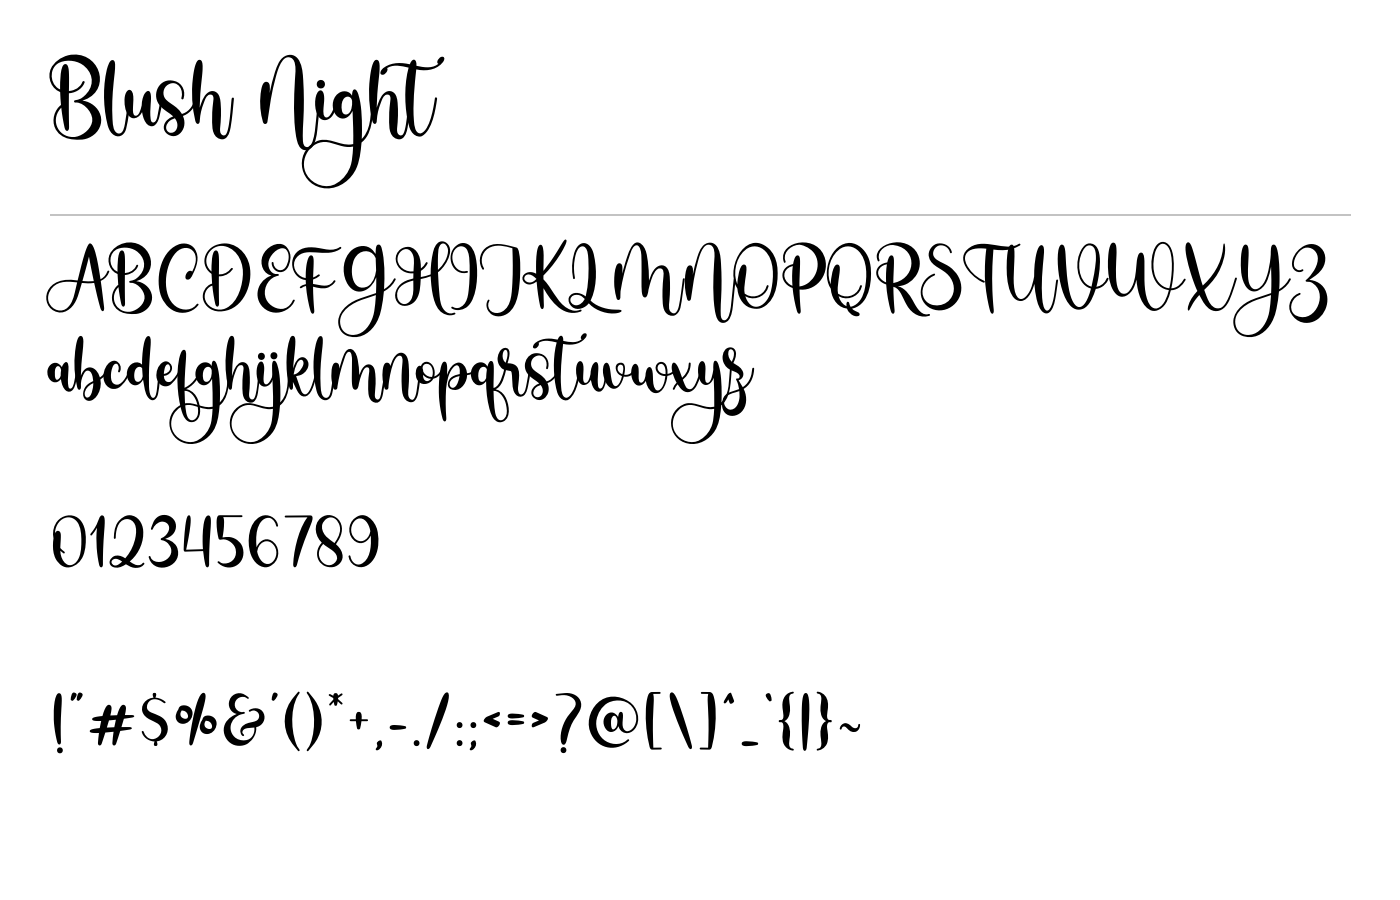 Blush Night
ABCDEFGHIJKLMNOPQRSTUVWXYZ
abcdefghijklmnopqrstuvwxyz
0123456789
!"#$%&'()*+,-./:;<=>?@[\]^_`{|}~